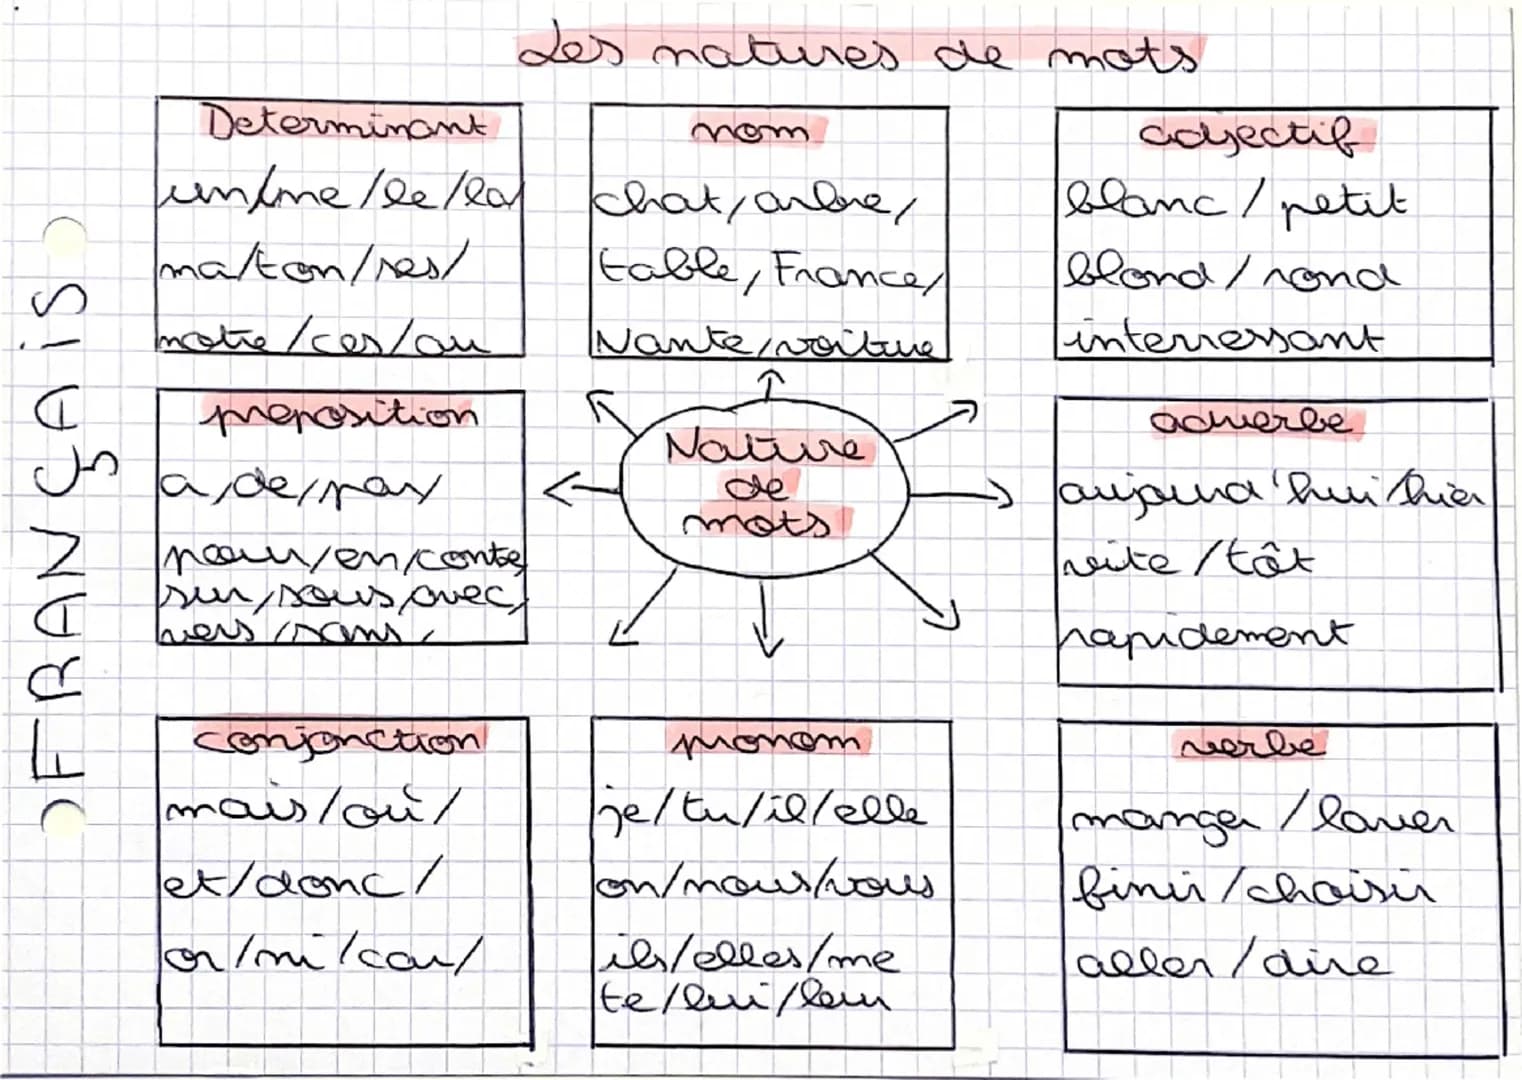 Les natures de mots
FRANÇAIS
Determinant
un/une/le/la/
ma/ton/ses/
notre/ces/au
nom
chat, arbre,
table, France,
Nante, voiture
adjectif
blanc / petit
blond / rond
interressant
preposition
a, de, par
pour/en, contre,
sur, sous, avec,
vers, sans,
Nature
de
mots
adverbe
aujourd'hui/hier
vite / tôt
rapidement
conjonction
mais/où/
et/donc/
or/ni/car/
pronom
je/tu/il/elle
on/nous/vous
ils/elles/me
te/lui/leur
verbe
manger / laver
finir / choisir
aller / dire